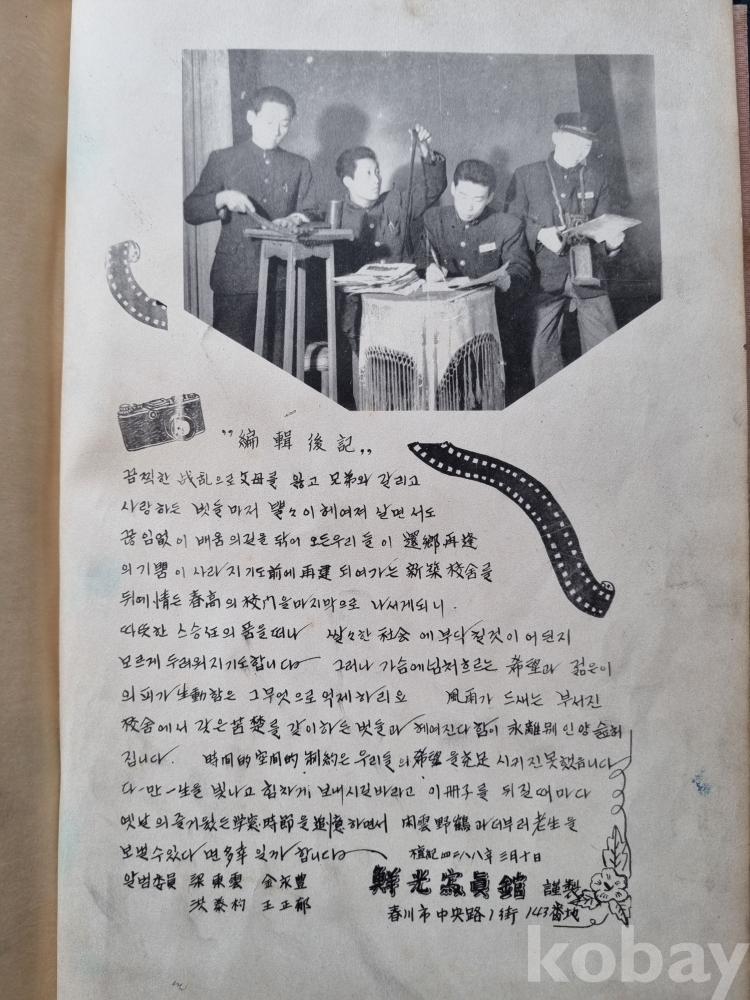 "編輯後記"
끔찍한 战乱으로 父母를 잃고 兄弟와 갈리고
사랑하는 벗들마저 뿔々이 헤여져 살면서도
끊임없이 배움의길을 닦어 오든우리들이 還鄕再逢
의기쁨이 사라지기도前에 再建 되여가는 新築 校舍를
뒤에 情든 春高의 校门을마지막으로 나서게되니.
따뜻한 스승任의 품을떠나 쌀々한 社会에부다칠것이 어된지
모르게 두려워지기도합니다 그러나 가슴에넘처흐르는 希望과 젊은이
의피가 生動함은 그무엇으로 억제하리요 風雨가 드새는 부서진
校舍에서 갖은 苦楚를 같이하든벗들과 헤여진다함이 永離別인양
집니다. 時間的 空間的 制約은 우리들의 希望을充足 시키진못했습니다
다-만 一生을 빛나고 힘차게 보내시길바라고 이冊子를 뒤질때마다
옛날의즐거웠든学窓時節을追憶하면서 闲雲野鶴과더부러老生을
보낼수있다 면多幸 일까 합니다 檀紀四二八八年 三月十日
알범委員 梁東雲 金永豊
洪泰杓 王正郁
鮮光寫眞舘 謹製
春川市中央路1街 143番地
kobay